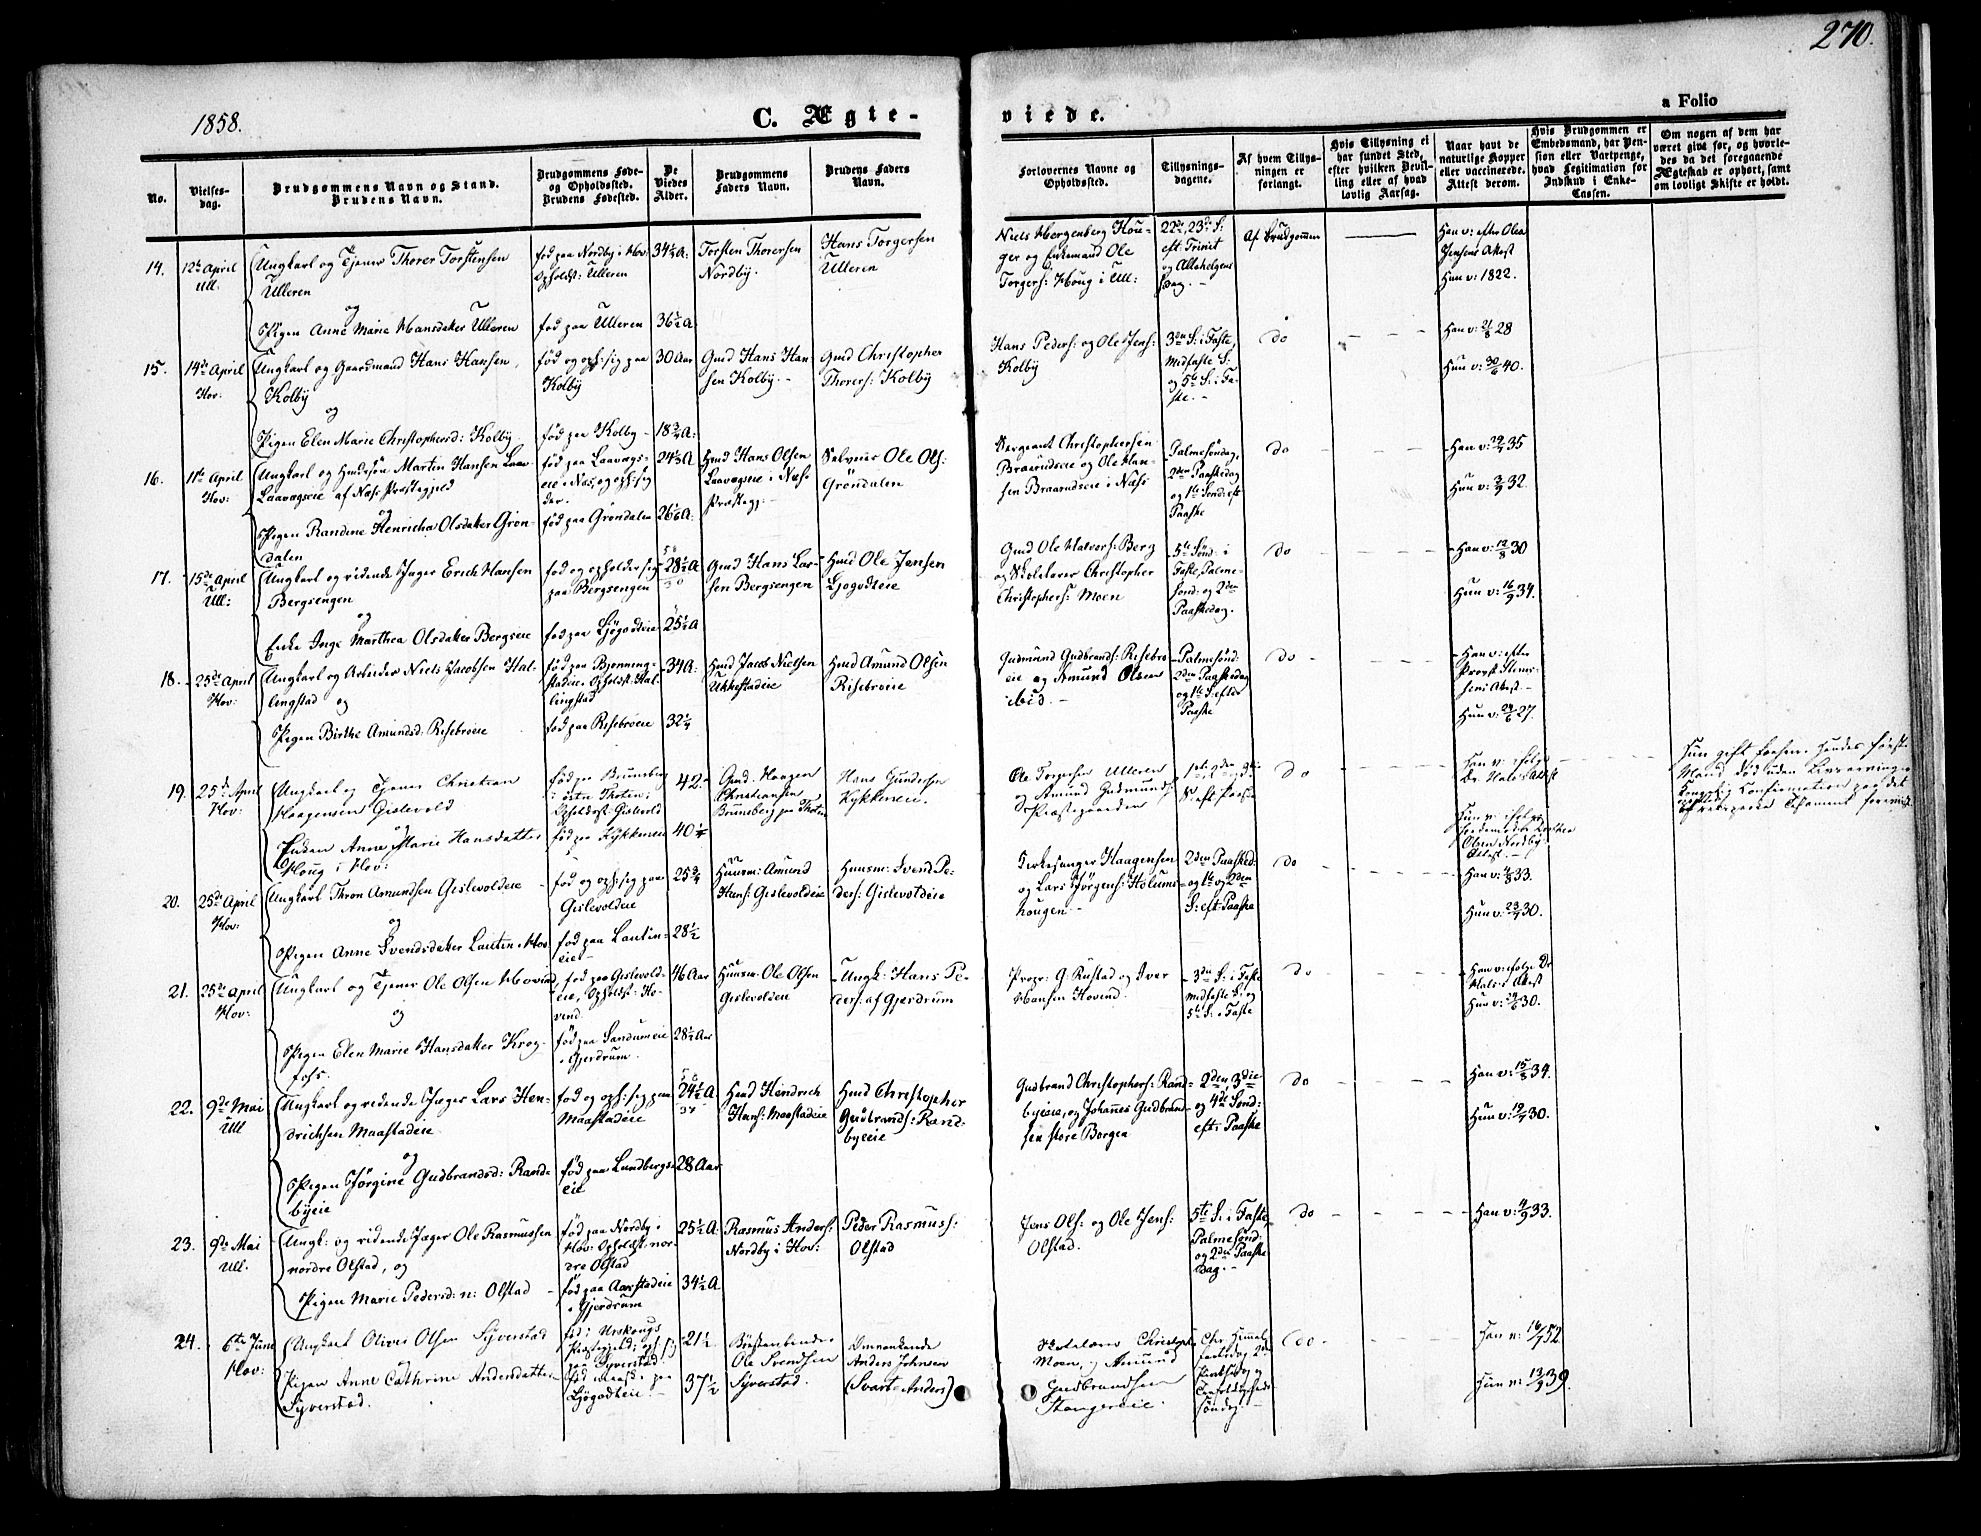 270.
1858.
C. Ægte-
viede.
a Folio
No.
Vielses-
dag.
Brudgommens Navn og Stand.
Brudens Navn.
Brudgommens Føde-
og Opholdssted.
Brudens Fødested.
De
Viedes
Alder.
Brudgommens
Faders Navn.
Brudens Faders
Navn.
Forlovernes Navne og
Opholdssted.
Tillysnings-
dagene.
Af hvem Tillys-
ningen er
forlangt.
Hvis Tillysning ei
har fundet Sted,
efter hvilken Bevil-
ling eller af hvad
lovlig Aarsag.
Naar havt de
naturlige Kopper
eller vaccinerede.
Attest derom.
Hvis Brudgommen er
Embedsmand, har Pen-
sion eller Vartpenge,
hvad Legitimation for
Indskud i Enke-
Cassen.
Om nogen af dem har
været gift før, og hvorle-
des da det foregaaende
Ægteskab er ophørt, samt
om lovligt Skifte er holdt.
14.
12te April
Ull.
Ungkarl og Tjener Thorer Torstensen
Ulleren
og
Pigen Anne Marie Hansdatter Ulleren
fød paa Nordby i Hov:
Opholdst: Ulleren
fød paa Ulleren
34½ A:
36½ A:
Torsten Thorersen
Nordby.
Hans Torgersen
Ulleren
Niels Hergenberg Hou-
ger og Enkemand Ole
Torgers: Houg i Ull:
22de, 23de S:
eft Trinit
og Allehelgens
Dag. -
Af Brudgommen
Han v: efter Olea
Jensens Attest
Hun v: 1822.
15.
14de April
Hov:
Ungkarl og Gaardmand Hans Hansen,
Kolby
og
Pigen Elen Marie Christophersd: Kolby
fød og oph: sig paa
Kolby
fød paa Kolby -
30 Aar
18¾ A:
Gmd Hans Han-
sen Kolby. -
Gmd Christopher
Thorers: Kolby
Hans Peders: og Ole Jens:
Kolby
3die S: i Faste,
Midfaste S:
og 5te S: i Fa-
ste. -
do
Han v: 2/8 28
Hun v: 30/6 40.
16.
11te April
Hov:
Ungkarl og Huusesøn Martin Hansen Laa-
Laavagseie af Næs Præstegjeld
og
Pigen Randine Henricha Olsdatter Grøn-
dalen
fød paa Laavags-
eie i Næs, og oph: sig
der.
fød paa Grøndalen
24½ A
26½ A:
Hmd Hans Olsen
Laavagseie i Næs
Præstegj: -
Selveier Ole Ols:
Grøndalen
Sergeant Christophersen
Braarudseie og Ole Han-
sen Braarudseie i Næs
Palmesøndag,
2den Paaskedag
og 1ste Sønd: eft
Paaske
do
Han v: 35
Hun v: 32.
17.
15de April
Ull:
Ungkarl og ridende Jæger Erich Hansen
Bergsengen
og
Enke Inge Marthea Olsdatter Bergseie
fød og opholder sig
paa Bergsengen
fød paa Ljøgodteie
28½ A
25½ A
Gmd Hans Lar-
sen Bergsengen
Hmd Ole Jensen
Ljøgodteie
Gmd Ole Halvors: Berg
og Skolelærer Christopher
Christophers: Moen
5te Sønd: i
Faste, Palme-
sønd: og 2den
Paaskedag.
do
Han v: 12/8 30
Hun v: 16/9 34.
18.
25de April
Hov:
Ungkarl og Arbeider Niels Jacobsen Hal-
lingstad og
Pigen Birthe Amundsd: Risebroeie
fød paa Bjønning-
stadeie. Opholdst: Hal-
lingstad
fød paa Risebroeie
34 A:
32¼
Hmd Jacob Nielsen
Ukkestadeie
Hmd Amund Olsen
Risebroeie
Gudmund Gudbrands: Risebro
eie og Amund Olsen
ibid. -
Palmesønd:
2den Paaskedag
og 1ste S: efter
Paaske
do
Han v: efter
Provst Stens-
sens Attest. -
Hun v: 27.
19.
25de April
Hov:
Ungkarl og Tjener Christian
Haagensen Gislevold
og
Enken Anne Marie Hansdatter
Houg i Hov:
fød paa Brumsberg
i østre Thoten;
Opholdsst: Gislevold
fød paa Kykkeneie
42.
40¼
Gmd. Haagen
Christiansen
Brumsberg paa Thoten
Hans Gundersen
Kykkeneie.
Ole Torgersen Ulleren
og Amund Gudmunds:
Præstegaarden
1ste, 2den og 3die
S: eft. Paaske
do
Han v: ifølge
Dr. Hals's Attest
Hun v: ifølge
Jordemoder Dorthea
Olsen Nordby's
Attest. -
Hun gift forhen. Hendes første
Mand død uden Livsarvinger
Kongelig Confirmation paa det
oprettede Testament forevist.
20.
25de April
Hov:
Ungkarl Thron Amundsen Gislevoldeie
og
Pigen Anne Svendsdatter Lautin i Hov
fød og oph: sig paa
Gislevoldeie
fød paa Lautin-
eiet
25¾
28½
Huusm: Amund
Hans: Gislevoldeie
Huusm: Svend Pe-
ders: Gislevoldeie
Kirkesanger Haagensen
og Lars Jørgens: Holums-
hougen -
2den Paasked:
og 1ste og 2den
S: eft: Paaske
do
Han v: 33.
Hun v: 30.
21.
25de April
Hov:
Ungkarl og Tjener Ole Olsen Hovind
og
Pigen Elen Marie Hansdatter Krog-
fos:
fød paa Gislevold-
eie, Opholdst: Ho-
vind
fød paa Sandumeie
i Gjerdrum.
46 Aar
28½ Aar
Huusm: Ole Olsen
Gislevoldeie
Ungk: Hans Pe-
ders: af Gjerdrum
Propr: G: Rustad og Iver
Hansen Hovind.
3die S: i Faste
Midfaste S: og
5te S: i Faste
do
Han v: ifølge Dr
Hals's Attest
Hun v: 30.
22.
9de Mai
Ull
Ungkarl og ridende Jæger Lars Hen-
drichsen Maastadeie.
og
Pigen Jørgine Gudbrandsd: Rande
byeie
fød og oph: sig paa
Maastadeie
fød paa Lundbergs-
eie
24½ A
28 Aar
Hmd Hendrich
Hans: Maastadeie
Hmd Christopher
Gudbrands: Rand-
byeie
Gudbrand Christophers: Rand-
byeie, og Johannes Gudbrand-
sen store Borgen
2den, 3die
og 4de Sønd:
eft: Paaske
do
Han v: 15/8 34.
Hun v: 30.
23.
9de Mai
Ull.
Ungk: og ridende Jæger Ole Rasmussen
nordre Olstad, og
Pigen Marie Pedersd: n: Olstad
fød paa Nordby i
Hov: Opholdst: nor-
dre Olstad
fød paa Aarstadeie
i Gjerdrum
25½ A:
34½ A
Rasmus Anders:
Nordby i Hov:
Peder Rasmuss:
Olstad
Jens Ols: og Ole Jens:
Olstad.
5te S: i Faste,
Palmesønd:
og 2den Paaske
Dag. -
do
Han v: 33.
24.
6te Juni
Hov:
Ungkarl Oliver Olsen Syverstad
og
Pigen Anne Cathrine Andersdatter
Syverstad.
fød i Urskougs
Præstegjeld; oph: sig
paa Syverstad.
fød paa
Ljøgodteie. -
21½
37½
Bøssebinder
Ole Svendsen
Syverstad.
Omvankende
Anders Johnsen
(Svart-Anders)
Skolelærer Christoph:
Moen, og Amund
Gudbrandsen
Stangereie.
Chr. Himmel-
fartsdag, 2den
Pintsedag og
Trefoldigheds-
søndag.
do
Han v: 16/7 52
Hun v: 13/9 39.